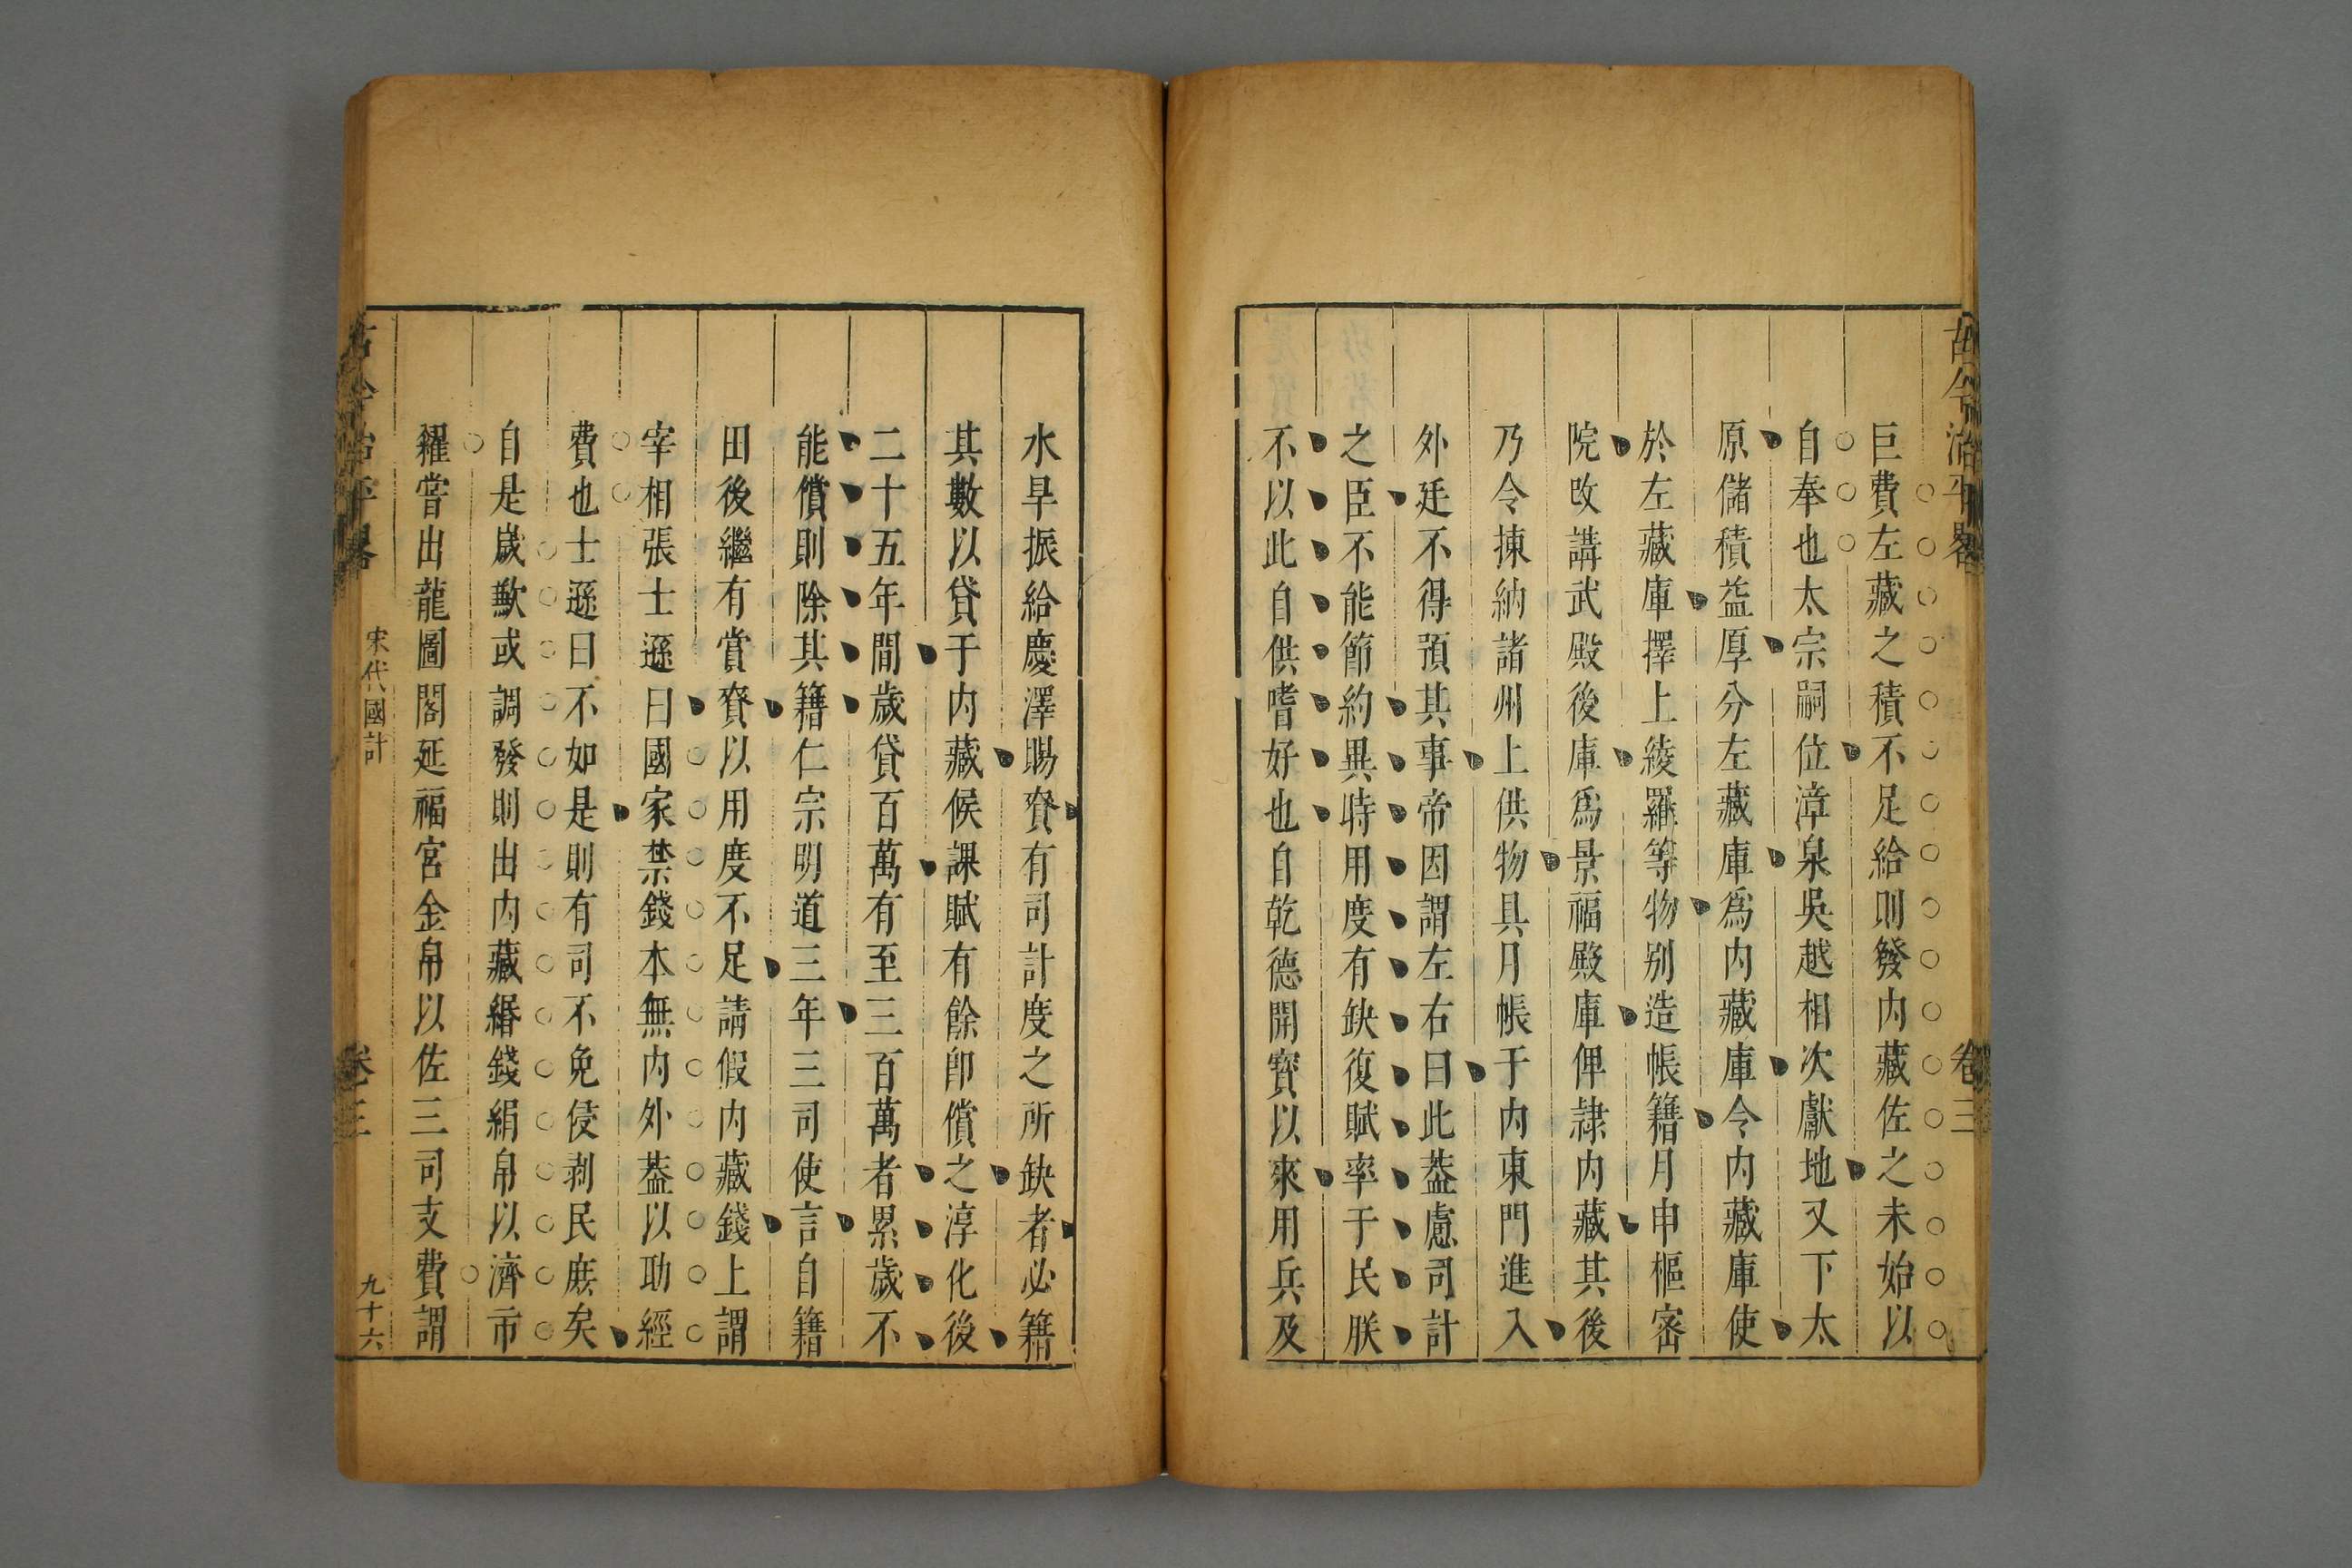 古今治平畧
卷三
巨費左藏之積不足給則發内藏佐之未始以
自奉也太宗嗣位漳泉吳越相次獻地又下太
原儲積益厚分左藏庫爲内藏庫令内藏庫使
於左藏庫擇上綾羅等物别造帳籍月申樞密
院改講武殿後庫爲景福殿庫俾隷内藏其後
乃令揀納諸州上供物具月帳于内東門進入
外廷不得預其事帝因謂左右曰此葢慮司計
之臣不能節約異時用度有缺復賦率于民朕
不以此自供嗜好也自乾德開寳以來用兵及
水旱振給慶澤賜賚有司計度之所缺者必籍
其數以貸于内藏候課賦有餘卽償之淳化後
二十五年間歲貸百萬有至三百萬者累歲不
能償則除其籍仁宗明道三年三司使言自籍
田後繼有賞賚以用度不足請假内藏錢上謂
宰相張士遜曰國家禁錢本無内外葢以助經
費也士遜曰不如是則有司不免侵剥民庶矣
自是嵗歉或調發則出内藏緡錢絹帛以濟市
糴嘗出龍圖閣延福宮金帛以佐三司支費謂
古今治平畧
宋代國計
卷三
九十六